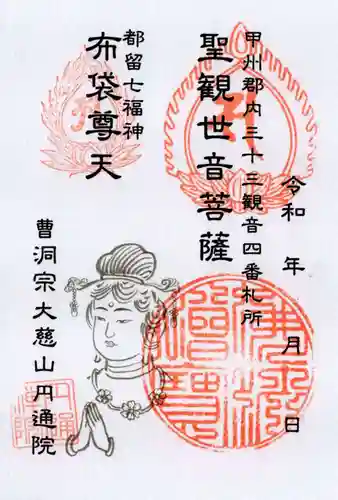 甲州郡内三十三観音四番札所
聖観世音菩薩
令和 年 月 日
都留七福神
布袋尊天
曹洞宗大慈山円通院
佛法僧寳